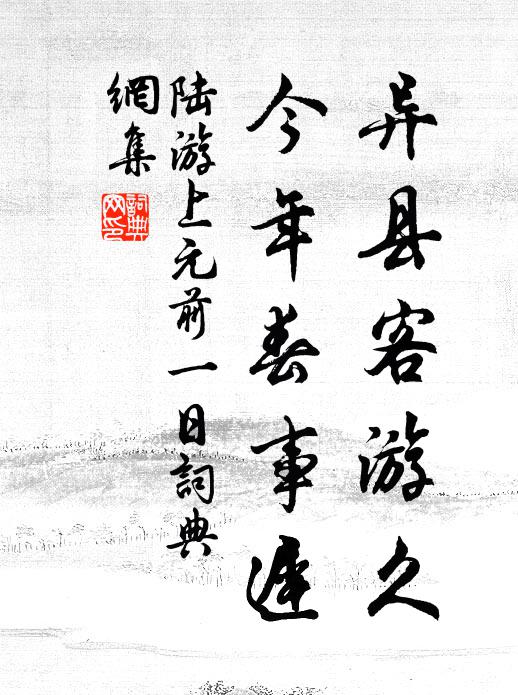 异县客游久
今年春事遲
陆游上元前一日詞典
網集
詞典网印